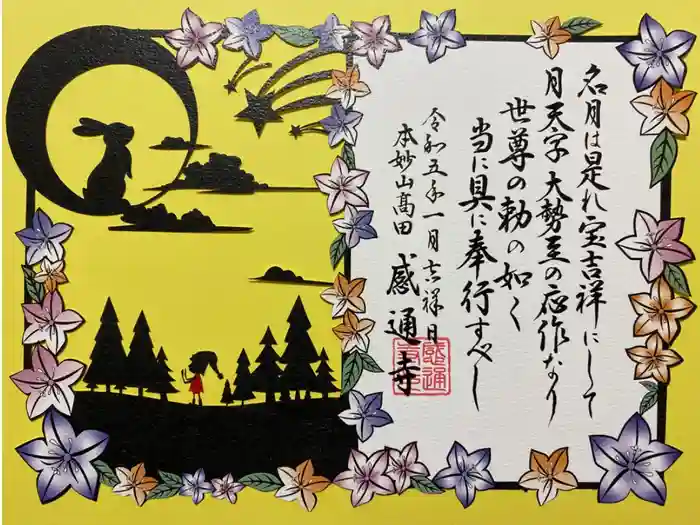 名月は是れ宝吉祥にして
月天子大勢至の応作なり
世尊の勅の如く
当に具に奉行すべし
令和五年一月吉祥日
本妙山髙田
感通寺
感通寺